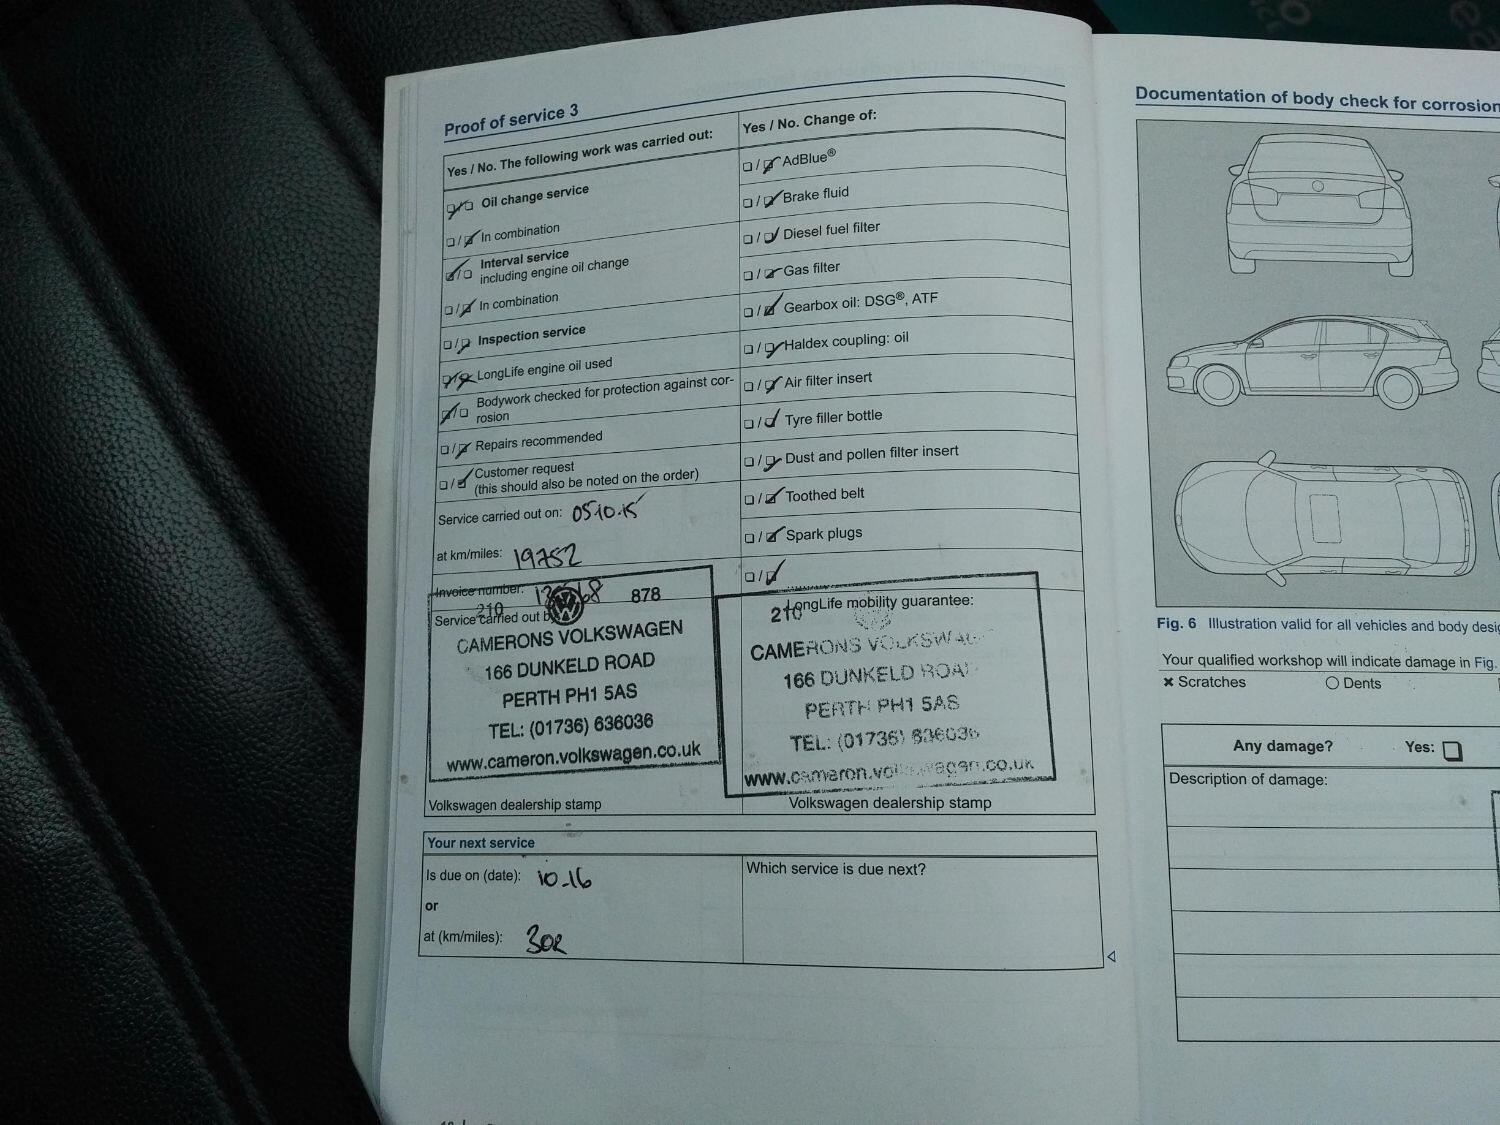 Proof of service 3
Yes / No. The following work was carried out:
Oil change service
In combination
Interval service
including engine oil change
In combination
Inspection service
LongLife engine oil used
Bodywork checked for protection against cor-
rosion
Repairs recommended
Customer request
(this should also be noted on the order)
Service carried out on: 05.10.15
at km/miles: 19752
Invoice number:
Service carried out by
210 878
CAMERONS VOLKSWAGEN
166 DUNKELD ROAD
PERTH PH1 5AS
TEL: (01736) 636036
www.cameron.volkswagen.co.uk
Volkswagen dealership stamp
Yes / No. Change of:
AdBlue®
Brake fluid
Diesel fuel filter
Gas filter
Gearbox oil: DSG®, ATF
Haldex coupling: oil
Air filter insert
Tyre filler bottle
Dust and pollen filter insert
Toothed belt
Spark plugs
LongLife mobility guarantee:
210
CAMERONS VOLKSWAG
166 DUNKELD ROAD
PERTH PH1 5AS
TEL: (01736) 636036
www.cameron.volkswagen.co.uk
Volkswagen dealership stamp
Your next service
Is due on (date): 10.16
or
at (km/miles): 30k
Which service is due next?
Documentation of body check for corrosion
Fig. 6 Illustration valid for all vehicles and body desig
Your qualified workshop will indicate damage in Fig.
× Scratches ○ Dents
Any damage? Yes:
Description of damage: